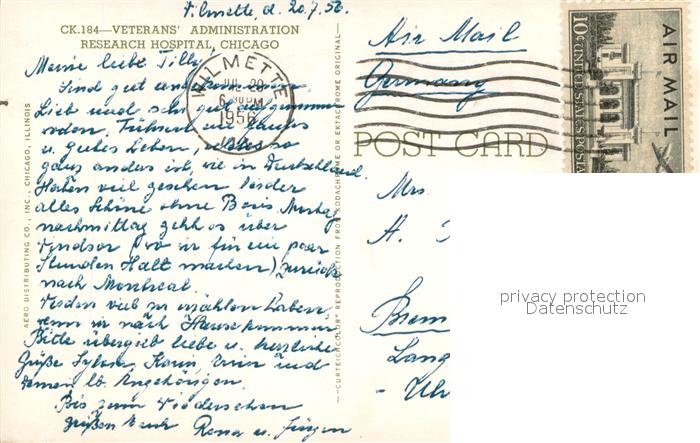 Wilmette, d. 20.7.56.
CK.184—VETERANS' ADMINISTRATION
RESEARCH HOSPITAL, CHICAGO
Meine liebe Tilly!
Sind gut angekommen.
Lieb und sehr gut aufgenommen
worden. Führen ein
u. gutes Leben, alles so
ganz anders ist, wie in Deutschland.
Haben viel gesehen leider
alles Schöne ohne Boris. Montag
nachmittag geht es über
Windsor (wo wir für ein paar
Stunden Halt machen) zurück
nach Montreal.
Werden viel zu erzählen haben,
wenn wir nach Hause kommen
Bitte übergieb liebe u. herzliche
Grüße Karin, und
Deinen lb. Angehörigen.
Bis zum Wiedersehen
grüßen Euch Rena u. Jürgen
AERO DISTRIBUTING CO., INC., CHICAGO, ILLINOIS
—CURTEICHCOLOR® REPRODUCTION FROM KODACHROME OR EKTACHROME ORIGINAL—
WILMETTE
JUL 20
6 PM
1956
Air Mail
Germany
POST CARD
AIR MAIL
10¢ UNITED STATES POSTAGE
Mrs.
H.
Brem
Lang
- Uhr
privacy protection
Datenschutz